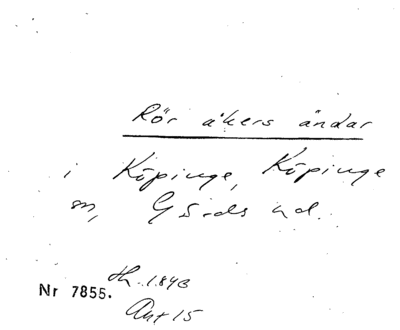 Rör åkers ändar
i Köpinge, Köpinge
sn, Gärds hd.
Nr 7855. th. 1843
Ant 15